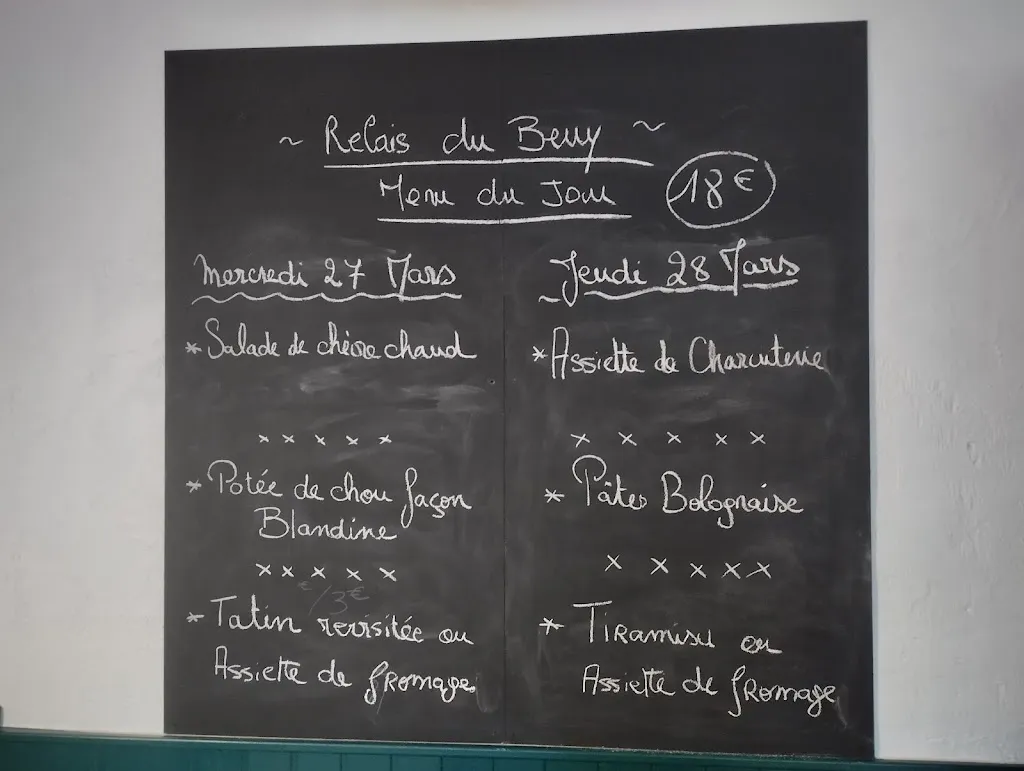 ~ Relais du Berry ~
Menu du Jour
18€
Mercredi 27 Mars
* Salade de chèvre chaud
x x x x x
* Potée de chou façon
Blandine
x x x x x
* Tatin revisitée ou
Assiette de fromage
~ Jeudi 28 Mars
* Assiette de Charcuterie
x x x x x
* Pâtes Bolognaise
x x x x x
* Tiramisu ou
Assiette de fromage